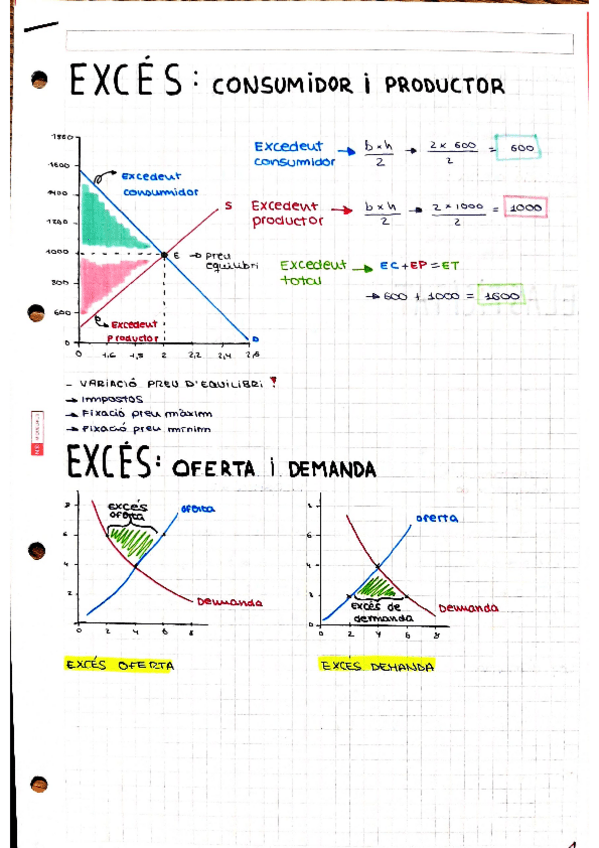 EXCÉS: CONSUMIDOR I PRODUCTOR
1800
1600
1400
1200
1000
800
600
0
0 1,6 1,8 2 2,2 2,4 2,6
Excedent
consumidor
S
E → preu
equilibri
Excedent
productor
D
Excedent
consumidor → b×h / 2 → 2 × 600 / 2 = 600
Excedent
productor → b×h / 2 → 2 × 1000 / 2 = 1000
Excedent
total → EC + EP = ET
→ 600 + 1000 = 1600
- VARIACIÓ PREU D'EQUILIBRI ?
→ Impostos
→ Fixació preu màxim
→ Fixació preu mínim
EXCÉS: OFERTA I DEMANDA
8
6
4
2
0 2 4 6 8
excés
oferta
oferta
Demanda
EXCÉS OFERTA
8
6
4
2
0
0 2 4 6 8
oferta
Demanda
Excés de
demanda
EXCÉS DEMANDA